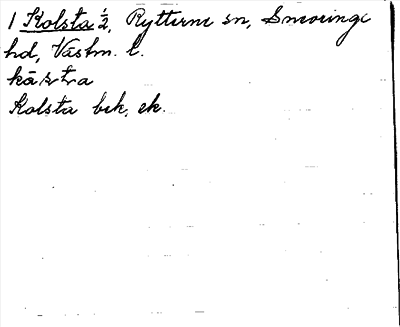 1 Kolsta ½, Rytterne sn, Snevringe
hd, Västm. l.
kå
Kolsta bek, ek.